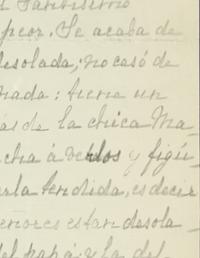 Santísimo
peor. Se acaba de
desolada; no casó de
nada: tiene un
ás de la chica Ma
cha á verlos y figú
rla tendida, es decir
enores estan desola
del papá y la del